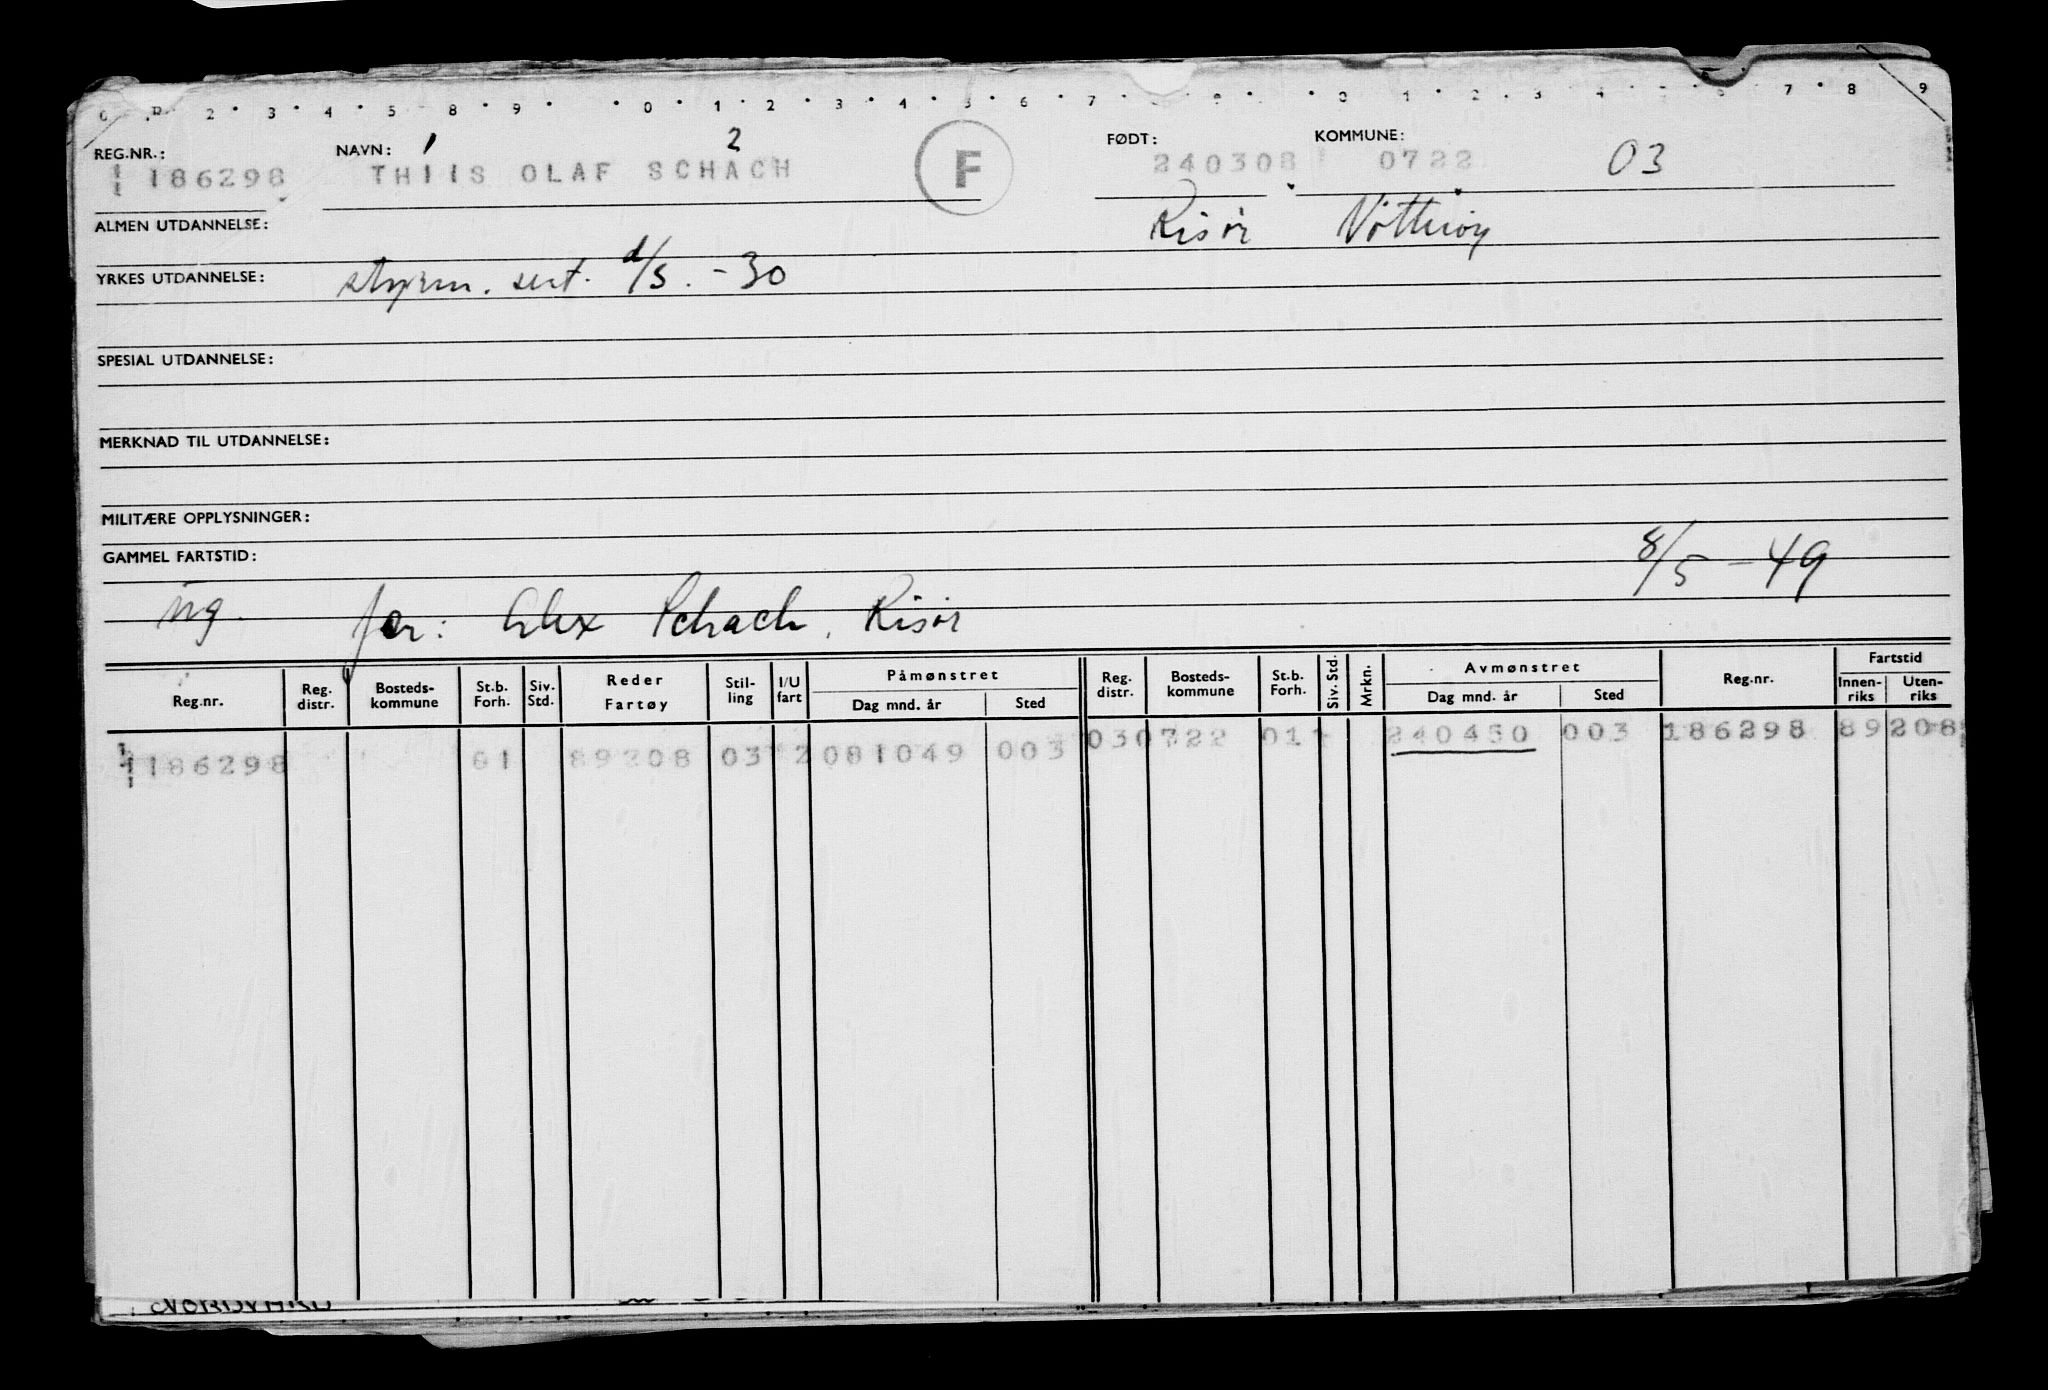 REG.NR.: NAVN: 1 2 FØDT: KOMMUNE:
186298 THIIS OLAF SCHACH F 240308 0722 03
ALMEN UTDANNELSE: Risør Nøtterøy
YRKES UTDANNELSE: styrm. sert. d/s. - 30
SPESIAL UTDANNELSE:
MERKNAD TIL UTDANNELSE:
MILITÆRE OPPLYSNINGER:
GAMMEL FARTSTID: 8/5 - 49
ug. far: Alex Schach, Risør
Reg.nr. Reg. distr. Bosteds-kommune St.b. Forh. Siv. Std. Reder Fartøy Stil-ling I/U fart Påmønstret Dag mnd. år Sted Reg. distr. Bosteds-kommune St.b. Forh. Siv. Std. Mrkn. Avmønstret Dag mnd. år Sted Reg.nr. Fartstid Innen-riks Uten-riks
186298 01 89208 03 2 081049 003 030722 011 240450 003 186298 89208